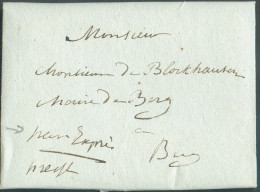 Monsieur
Monsieur de Blockhausen
Maire de Berg
a
par Exprès Berg
presst